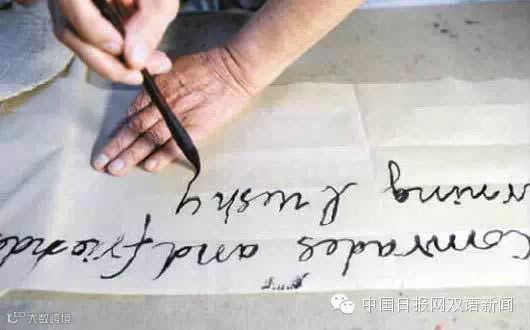 Comrades and friends
rning I wish y
中国日报网双语新闻
大数跨境